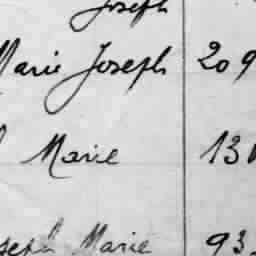 Joseph
Marie Joseph 209
Marie 130
Joseph Marie 93